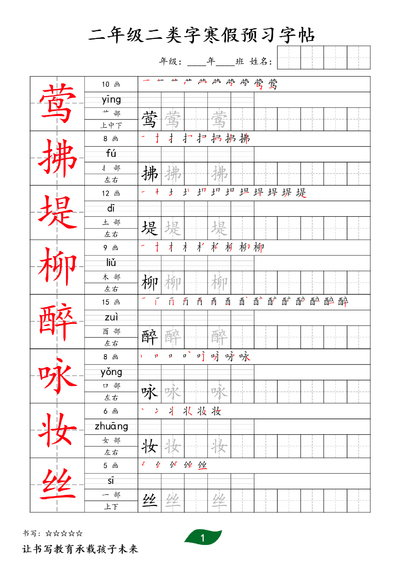 二年级二类字寒假预习字帖
年级：____年____班 姓名：
莺 10 画
yīng
艹 部
上中下
莺 莺 莺
拂 8 画
fú
扌 部
左右
拂 拂 拂
堤 12 画
dī
土 部
左右
堤 堤 堤
柳 9 画
liǔ
木 部
左右
柳 柳 柳
醉 15 画
zuì
酉 部
左右
醉 醉 醉
咏 8 画
yǒng
口 部
左右
咏 咏 咏
妆 6 画
zhuāng
女 部
左右
妆 妆 妆
丝 5 画
sī
一 部
上下
丝 丝 丝
书写：☆☆☆☆☆
1
让书写教育承载孩子未来